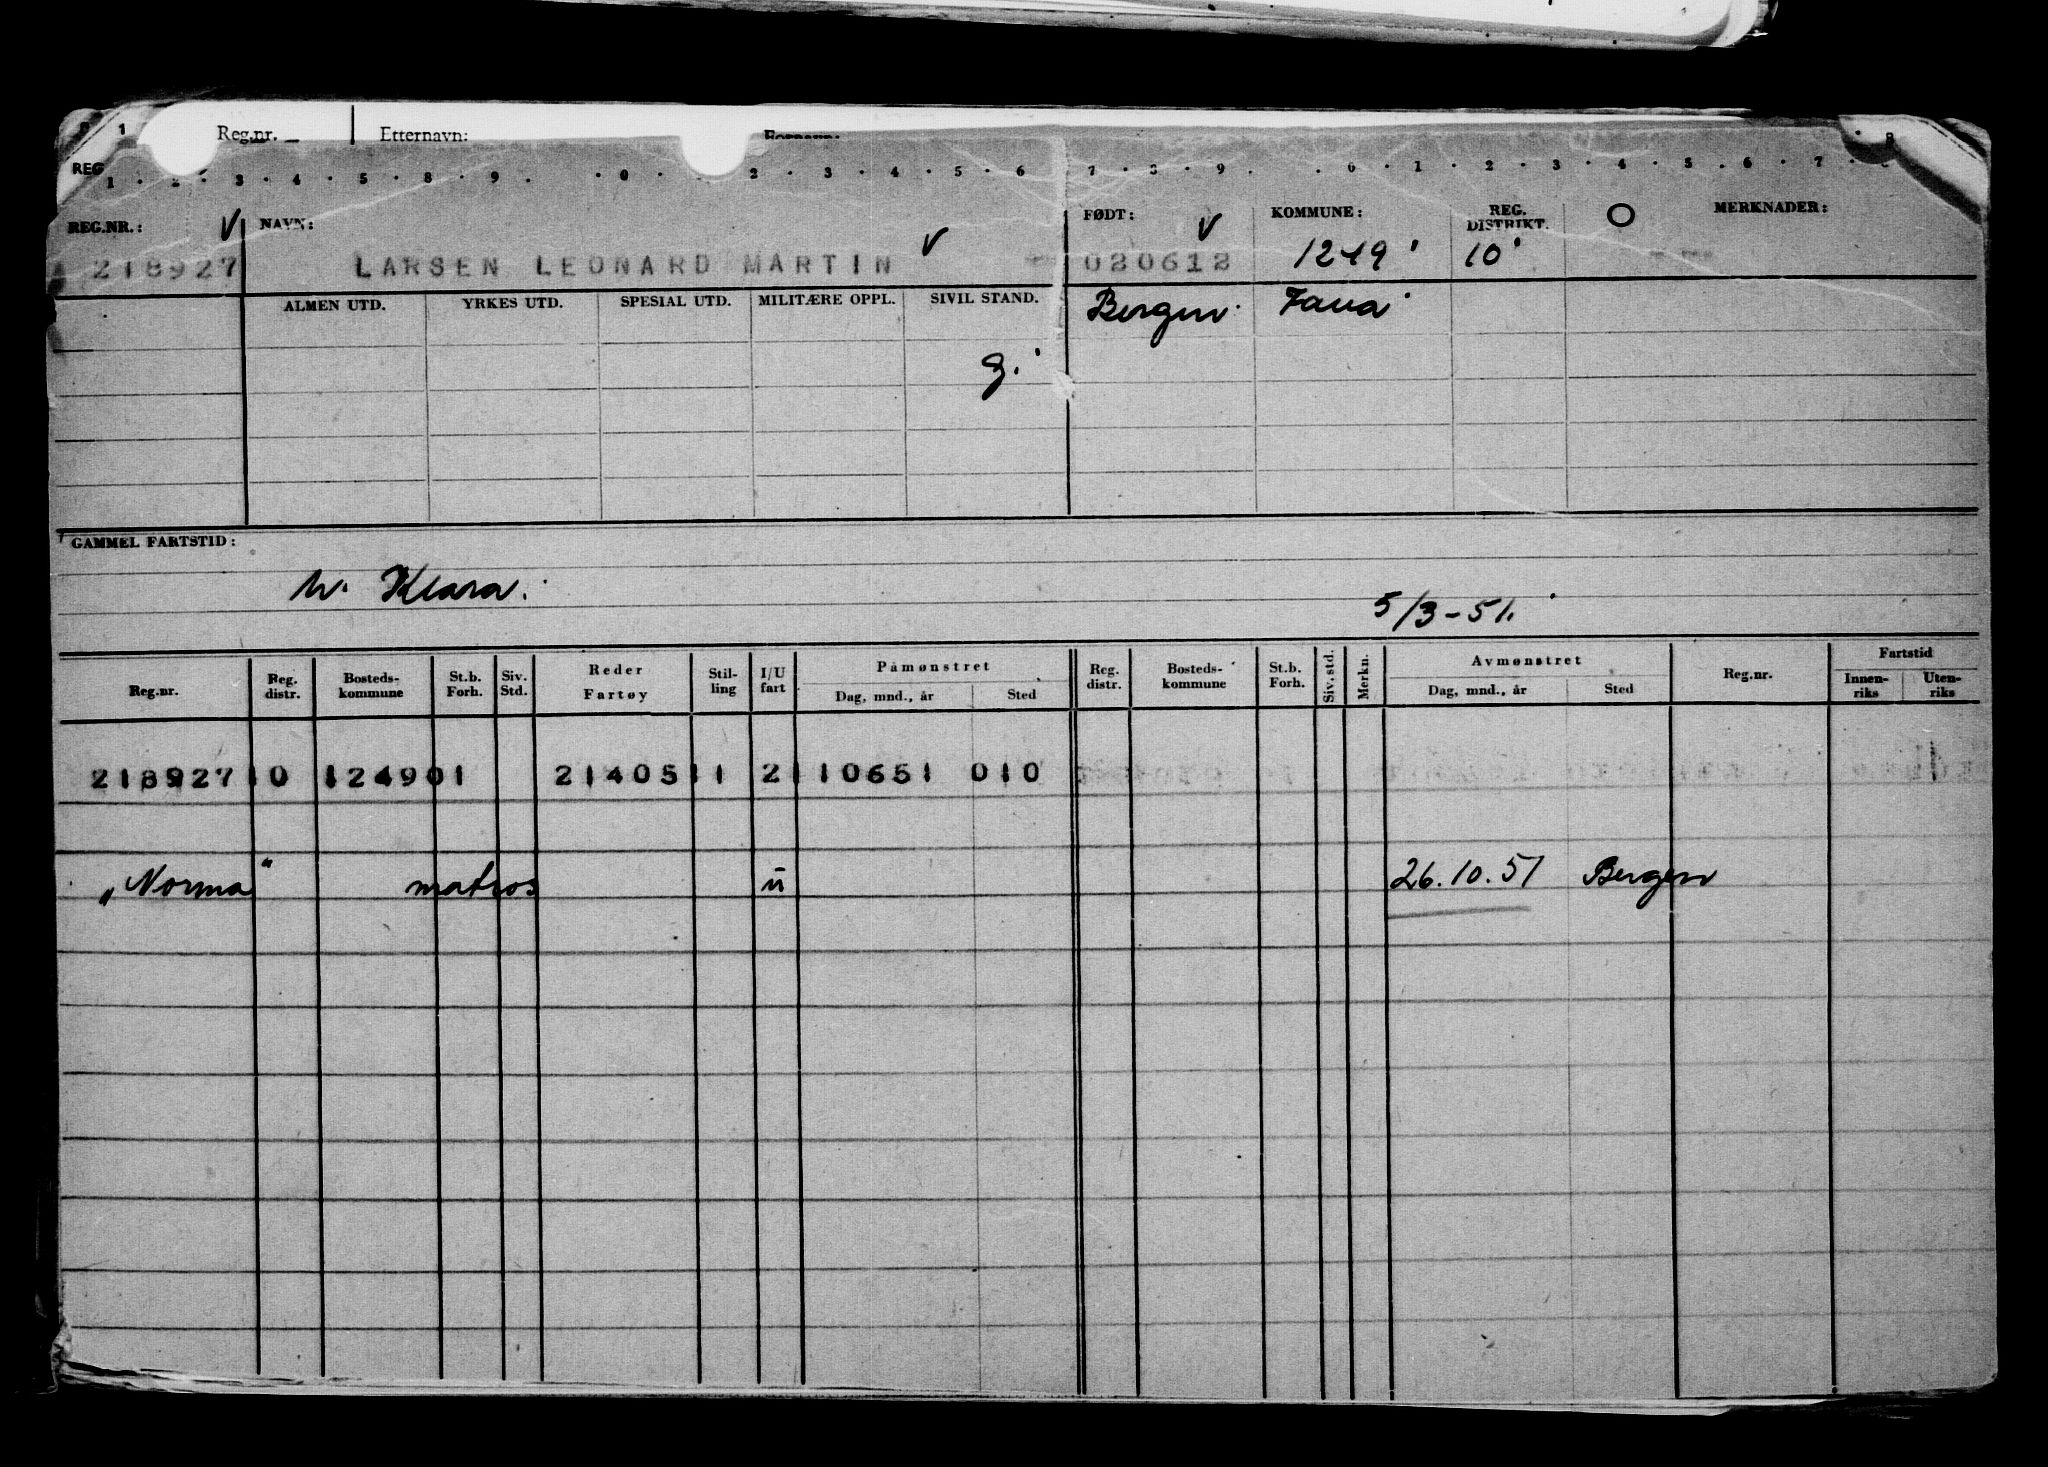 Reg.nr. Etternavn:
REG
1 . 2 . 3 . 4 . 5 . 8 . 9 . . 0 . 2 . 3 . 4 . 5 . 6 7 . 8 . 9 . . 0 . 1 . 2 . 3 . 4 . 5 . 6 . 7 .
REG.NR.: V NAVN: V FØDT: V KOMMUNE: REG. DISTRIKT. O MERKNADER:
218927 LARSEN LEONARD MARTIN 020612 1249 10
ALMEN UTD. YRKES UTD. SPESIAL UTD. MILITÆRE OPPL. SIVIL STAND. Bergen Fana
g.
GAMMEL FARTSTID:
h. Klara.
5/3-51.
Reg.nr. Reg. distr. Bosteds-kommune St.b. Forh. Siv. Std. Reder Fartøy Stil-ling I/U fart Påmønstret Dag, mnd., år Sted Reg. distr. Bosteds-kommune St.b. Forh. Siv. std. Merkn. Avmønstret Dag, mnd., år Sted Reg.nr. Fartstid Innen-riks Uten-riks
218927 10 124901 21405 11 2 110651 010
„Norma" matros u 26.10.51 Bergen